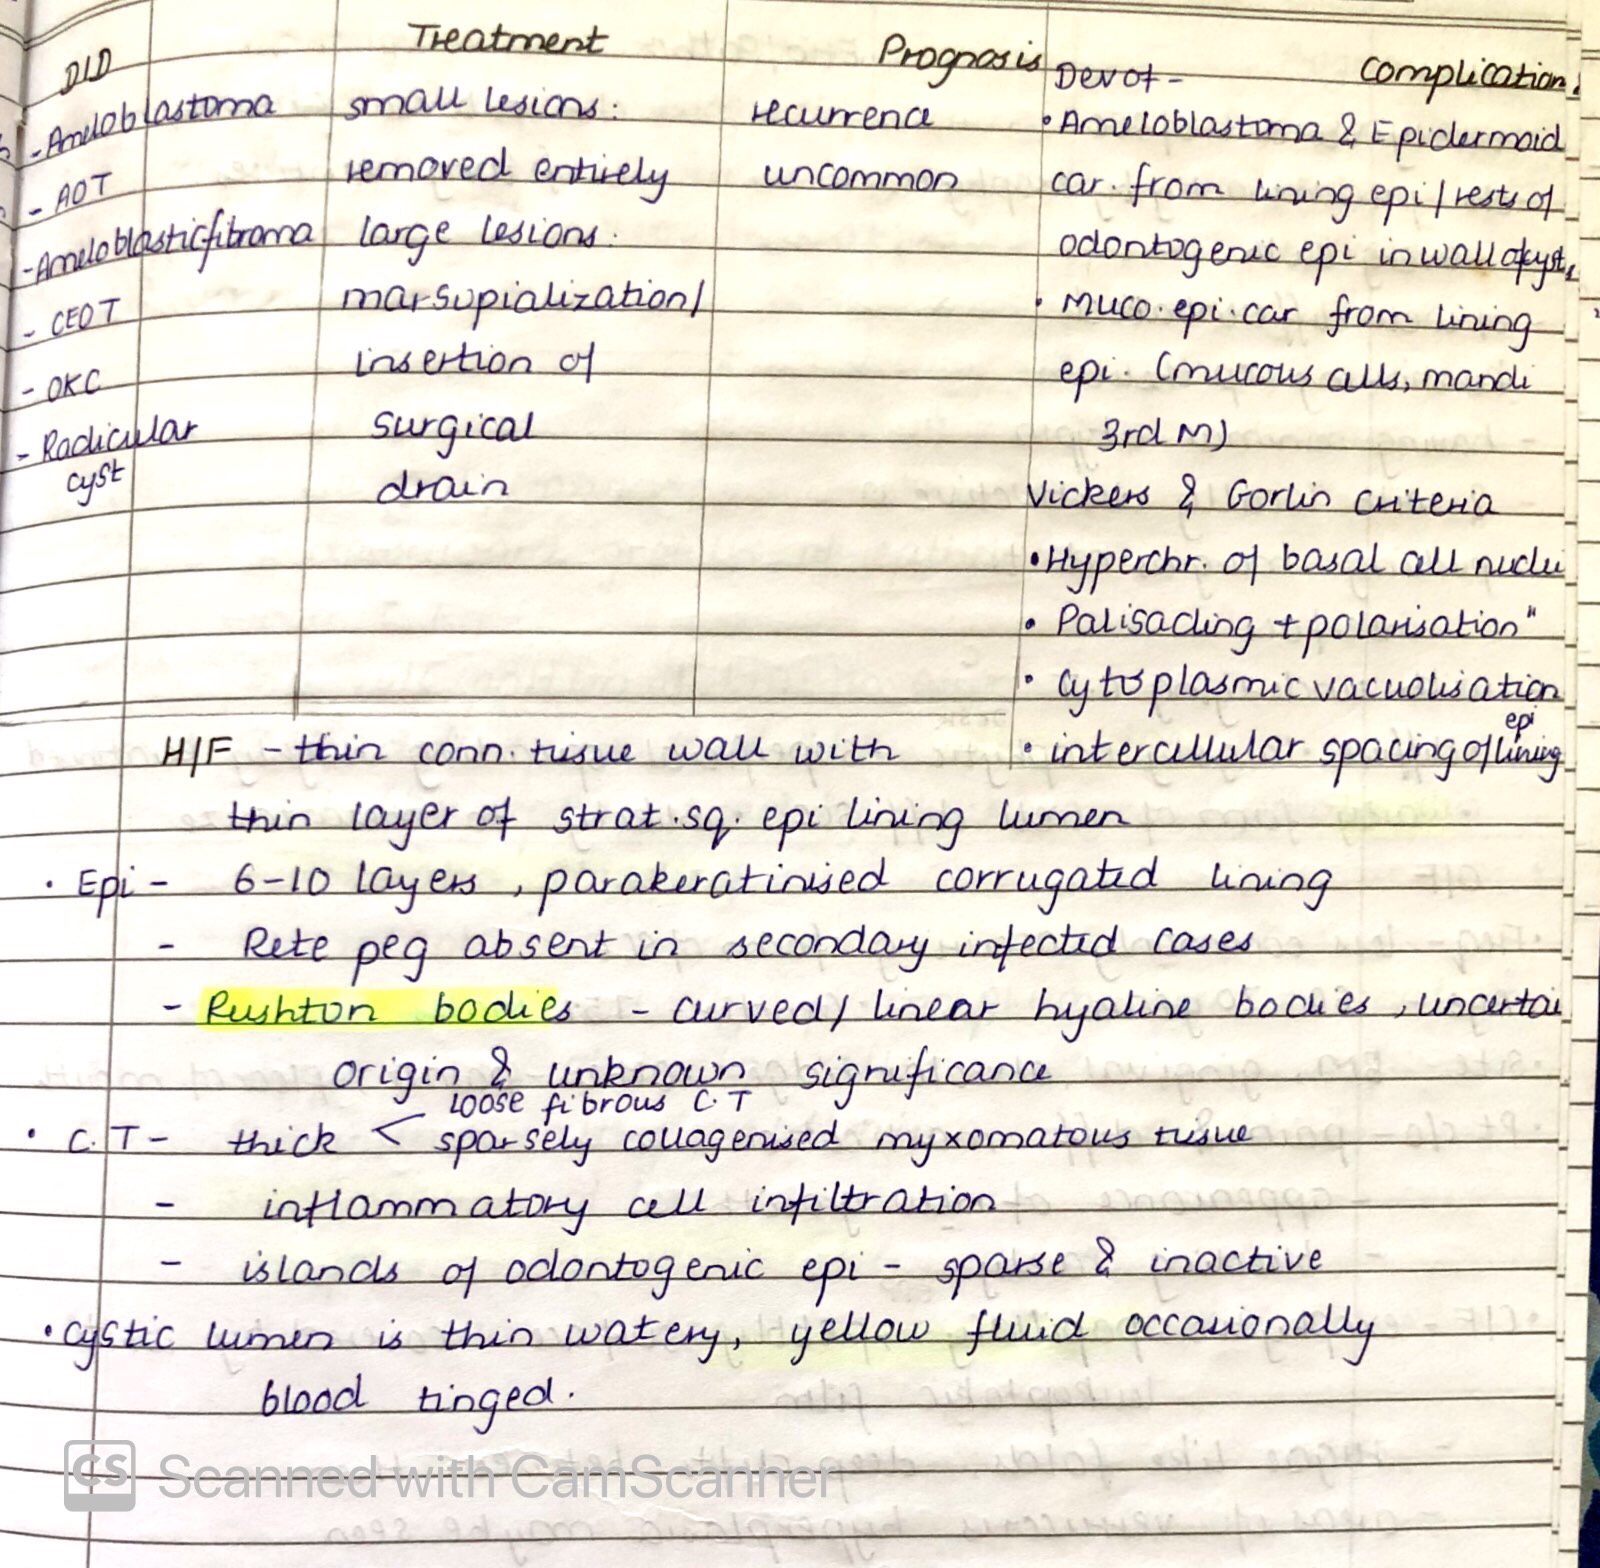 D/D
Treatment
Prognosis
Complication
- Ameloblastoma
- AOT
- Ameloblasticfibroma
- CEOT
- OKC
- Radicular
cyst
small lesions:
removed entirely
large lesions.
marsupialization/
insertion of
surgical
drain
recurrence
uncommon
Dev of -
• Ameloblastoma & Epidermoid
car. from lining epi/rests of
odontogenic epi in wall of cyst
• Muco.epi.car from lining
epi. (mucous cells, mandi
3rd M)
Vickers & Gorlin criteria
• Hyperchr. of basal cell nuclei
• Palisading + polarisation "
• cytoplasmic vacuolisation
• intercellular spacing of epi lining
H/F - thin conn. tissue wall with
thin layer of strat.sq. epi lining lumen
• Epi - 6-10 layers, parakeratinised corrugated lining
- Rete peg absent in secondary infected cases
- Rushton bodies - curved/ linear hyaline bodies, uncertai
origin & unknown significance
loose fibrous C.T
• C.T - thick < sparsely collagenised myxomatous tissue
- inflammatory cell infiltration
- islands of odontogenic epi - sparse & inactive
• cystic lumen is thin watery, yellow fluid occasionally
blood tinged.
CS Scanned with CamScanner